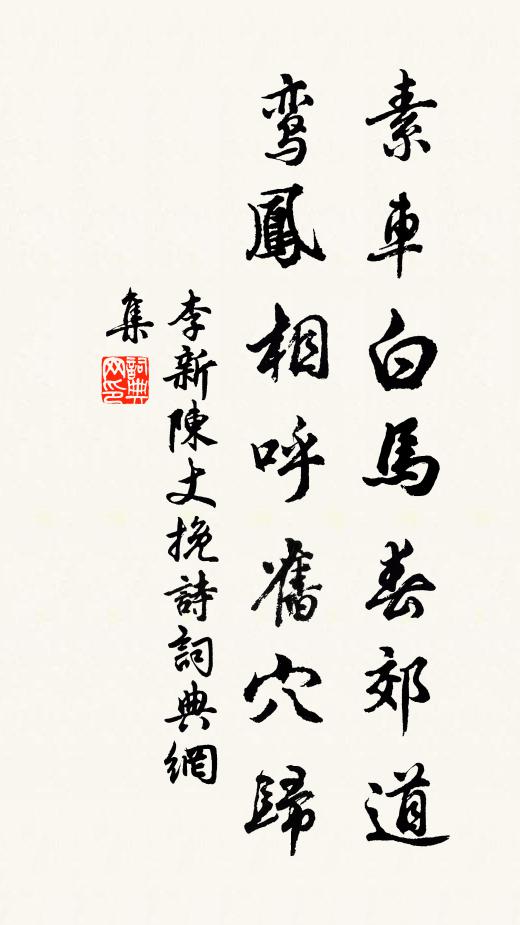 素車白馬春郊道
鸾鳳相呼舊穴歸
李新陳丈挽詩詞典網
集
詞典
网印